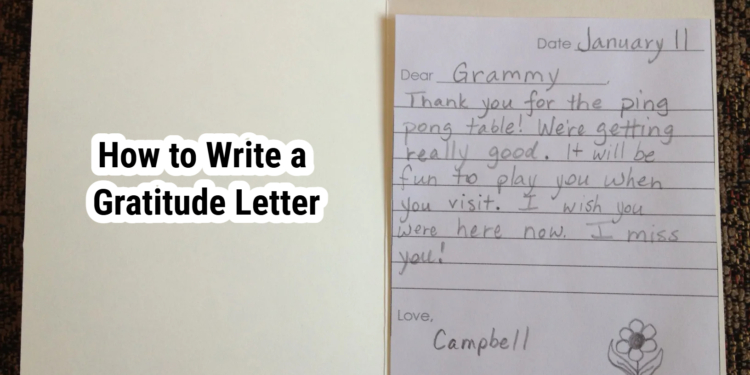 How to Write a
Gratitude Letter
Date January 11
Dear Grammy
Thank you for the ping
pong table! We're getting
really good. It will be
fun to play you when
you visit. I wish you
were here now. I miss
you!
Love,
Campbell